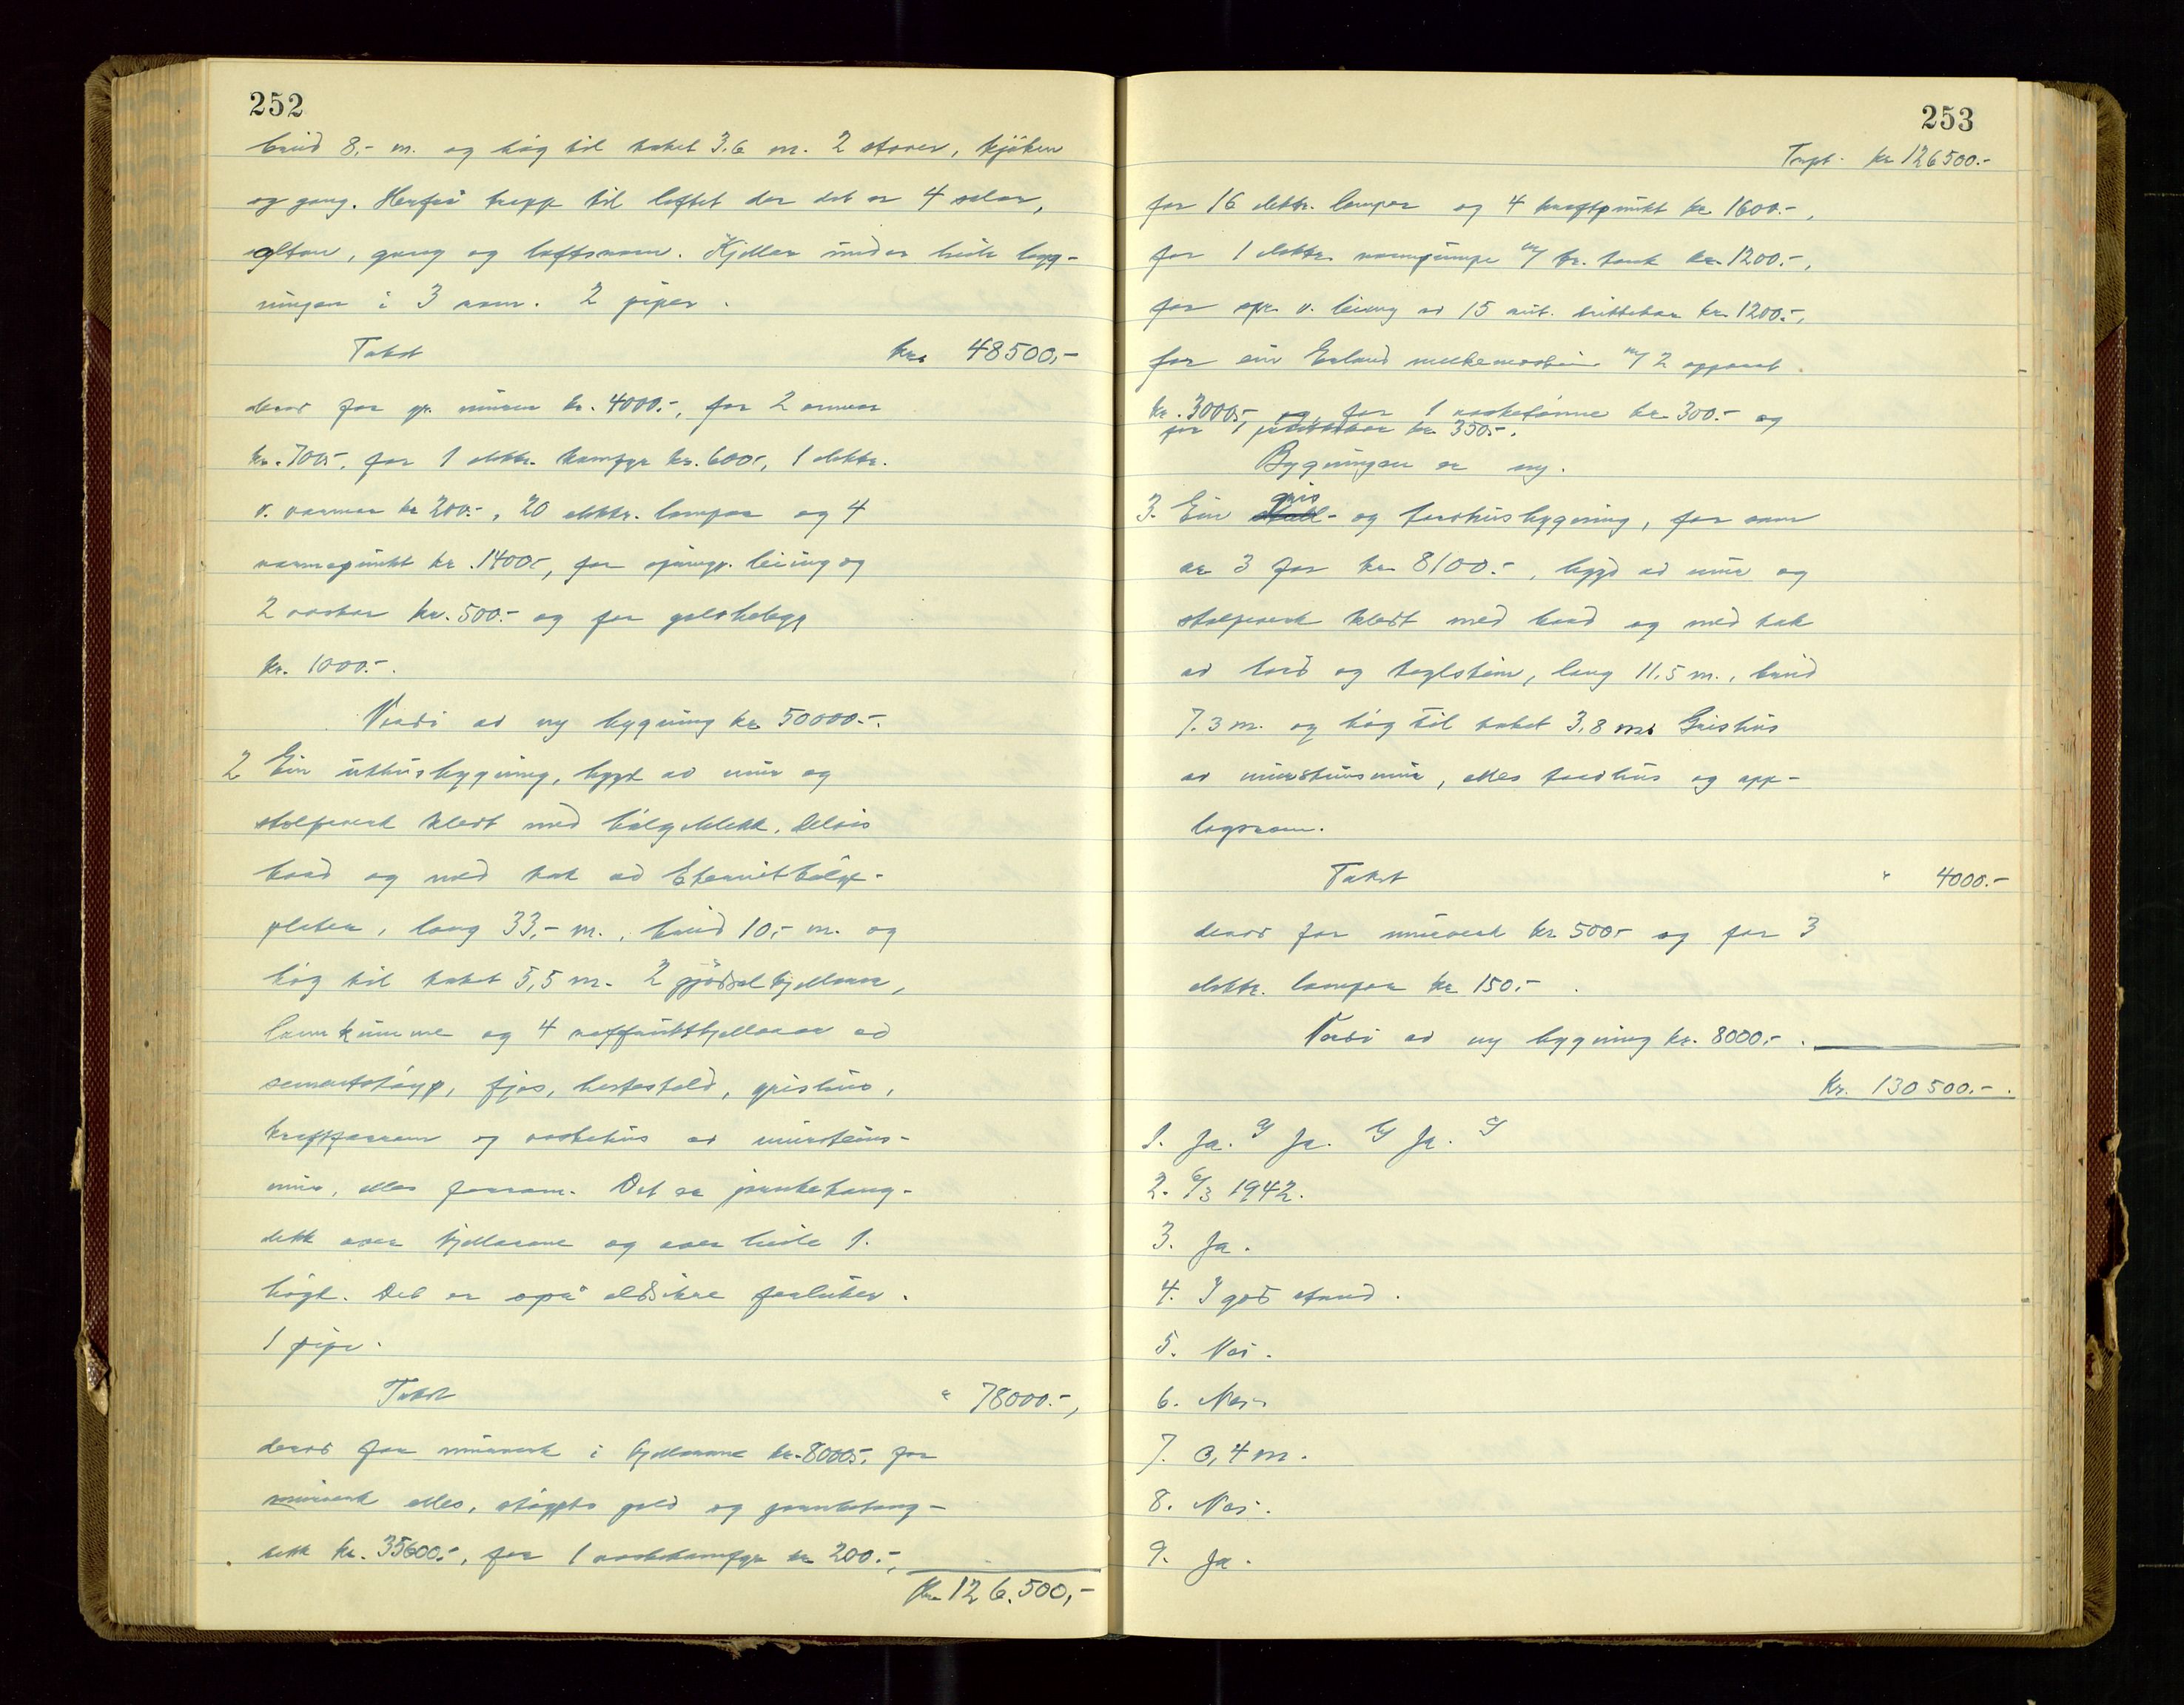 252
breid 8,- m. og høg til raket 3,6 m. 2 stover, kjøken
og gang. Herfrå trapp til loftet der det er 4 salar,
altan, gang og loftsrom. Kjellar under heile byg-
ningen i 3 rom. 2 piper.
Takst kr. 48500,-
derav for gr. muren kr. 4000.-, for 2 omnar
kr. 700.-, for 1 elektr. komfyr kr. 600.-, 1 elektr.
v. varmar kr 200.-, 20 elektr. lampor og 4
varmepunkt kr. 1400.-, for springv. leiing og
2 vaskar kr. 500.- og for golvbelegg
kr. 1000.-.
Verdi av ny bygning kr 50000.-.
2 Ein uthusbygning, bygd av mur og
stolpeverk kledt med bølgeblekk, delvis
bord og med tak av Eternitbølge-
plater, lang 33,- m., breid 10,- m. og
høg til raket 5,5 m. 2 gjødselkjellarar,
landkumme og 4 rotfruktkjellarar av
sementstøyp, fjos, hestestald, grishus,
kraftforrom og vaskehus av mursteins-
mur, elles forrom. Det er jarnbetong-
dekk over kjellarane og over heile 1.
høgd. Det er også eldsikre forluker.
1 pipe.
Takst " 78000.-,
derav for murverk i kjellarane kr. 8000.-, for
murverk elles, støypte golv og jarnbetong-
dekk kr. 35600.-, for 1 vaskekomfyr kr 200.-,
Kr. 126.500,-
253
Trspt. kr 126500.-
for 16 elektr. lampor og 4 kraftpunkt kr 1600.-,
for 1 elektr. vasspumpe m/ tr. tank kr. 1200.-,
for spr. v. leiing av 15 aut. drikkekar kr. 1200.-,
for ein Erland melkemaskin m/ 2 apparat
kr. 3000.-, og for 1 vasketønne kr. 300.- og
for 1 kr 350.-.
Bygningen er ny.
gris
3. Ein stall- og torvhusbygning, før som
nr 3 for kr 8100.-, bygd av mur og
stolpeverk kledt med bord og med tak
av bord og teglstein, lang 11,5 m., breid
7.3 m. og høg til raket 3,8 m. Grishus
av mursteinsmur, elles torvhus og opp-
lagsrom.
Takst " 4000.-
derav for murverk kr 500.- og for 3
elektr. lampor kr 150.- .
Verdi av ny bygning kr. 8000,- .
Kr. 130 500.- .
1. Ja. Ja. Ja.
2. 6/3 1942.
3. Ja.
4. I god stand.
5. Nei.
6. Nei.
7. 0,4 m.
8. Nei.
9. Ja.